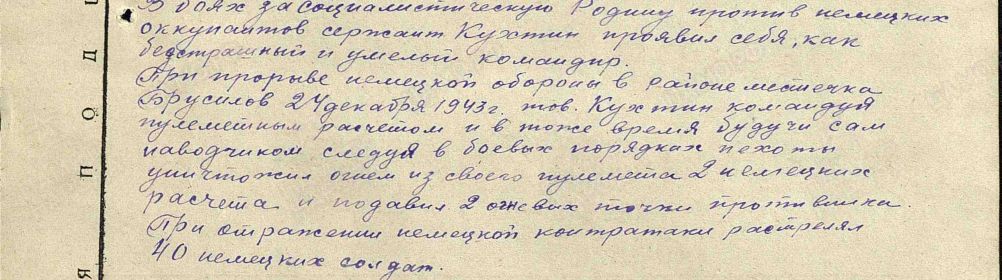 В боях за социалистическую Родину против немецких
оккупантов сержант Кухтин проявил себя, как
бесстрашный и умелый командир.
При прорыве немецкой обороны в районе местечка
Брусилов 24 декабря 1943 г. тов. Кухтин командуя
пулеметным расчетом и в тоже время будучи сам
наводчиком следуя в боевых порядках пехоты
уничтожил огнем из своего пулемета 2 немецких
расчета и подавил 2 огневых точки противника.
При отражении немецкой контратаки растрелял
40 немецких солдат.
П О Д
Я